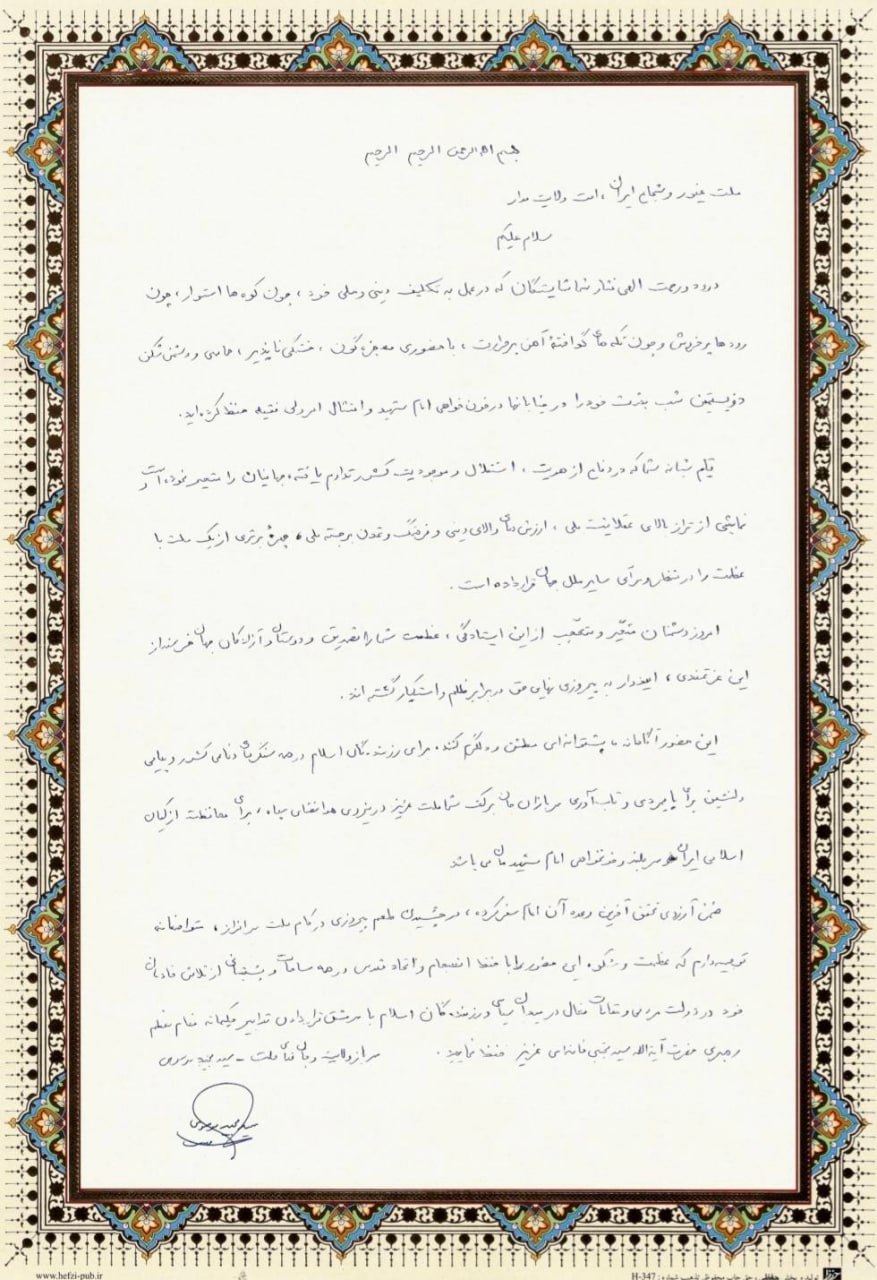 بسم الله الرحمن الرحیم
ملت غیور و شجاع ایران، امت ولایت مدار
سلام علیکم
درود و رحمت الهی نثار شما شایستگان که در عمل به تکلیف دینی و ملی خود، چون کوه ها استوار، چون
رودها پرخروش و چون تکه های گداختهٔ آهن پرحرارت، با حضوری معجزه گون، خستگی ناپذیر، حماسی و دشمن شکن
دویستمین شب بعثت خود را در خیابانها در خون خواهی امام شهید و امتثال امر ولی فقیه حفظ کرده اید.
قیام شبانه شما که در دفاع از هویت، استقلال و موجودیت کشور تداوم یافته، جهانیان را متحیر نموده است و
نمایشی از تراز بالای عقلانیت ملی، ارزش های والای دینی و فرهنگ و تمدن برجسته ملی، چهرهٔ برتری از یک ملت با
عظمت را در منظر سایر ملل جهان قرار داده است.
امروز دشمنان متحیّر و متعجّب از این ایستادگی، عظمت شما را تصدیق و دوستان و آزادگان جهان خرسند از
این عزتمندی، امیدوار به پیروزی نهایی حق در برابر ظلم و استکبار گشته اند.
این حضور آگاهانه، پشتوانه ای مطمئن و دلگرم کننده برای رزمندگان اسلام در همه سنگرهای دفاعی کشور و پیامی
دلنشین برای پایمردی و تاب آوری سربازان جان برکف شما ملت عزیز در نیروی هوافضای سپاه، برای محافظت از کیان
اسلامی ایران سربلند و خونخواهی امام شهیدمان می باشد
ضمن آرزوی تحقق آفرین وعده آن امام سفر کرده، در چشیدن طعم پیروزی در کام ملت سرافراز، متواضعانه
توصیه دارم که عظمت و شکوه این حضور را با حفظ انسجام و اتحاد مقدس در همه ساحات و پشتیبانی از تلاش خادمان
خود در دولت مردمی و مقامات فعال در میدان سیاسی و رزمندگان اسلام با سرمشق قراردادن تدابیر حکیمانه مقام معظم
رهبری حضرت آیةالله سید مجتبی خامنه ای عزیز حفظ نمایید. سرباز ولایت و جان فدای ملت - سید مجید موسوی
سید مجید موسوی
www.hefzi-pub.ir
H-347